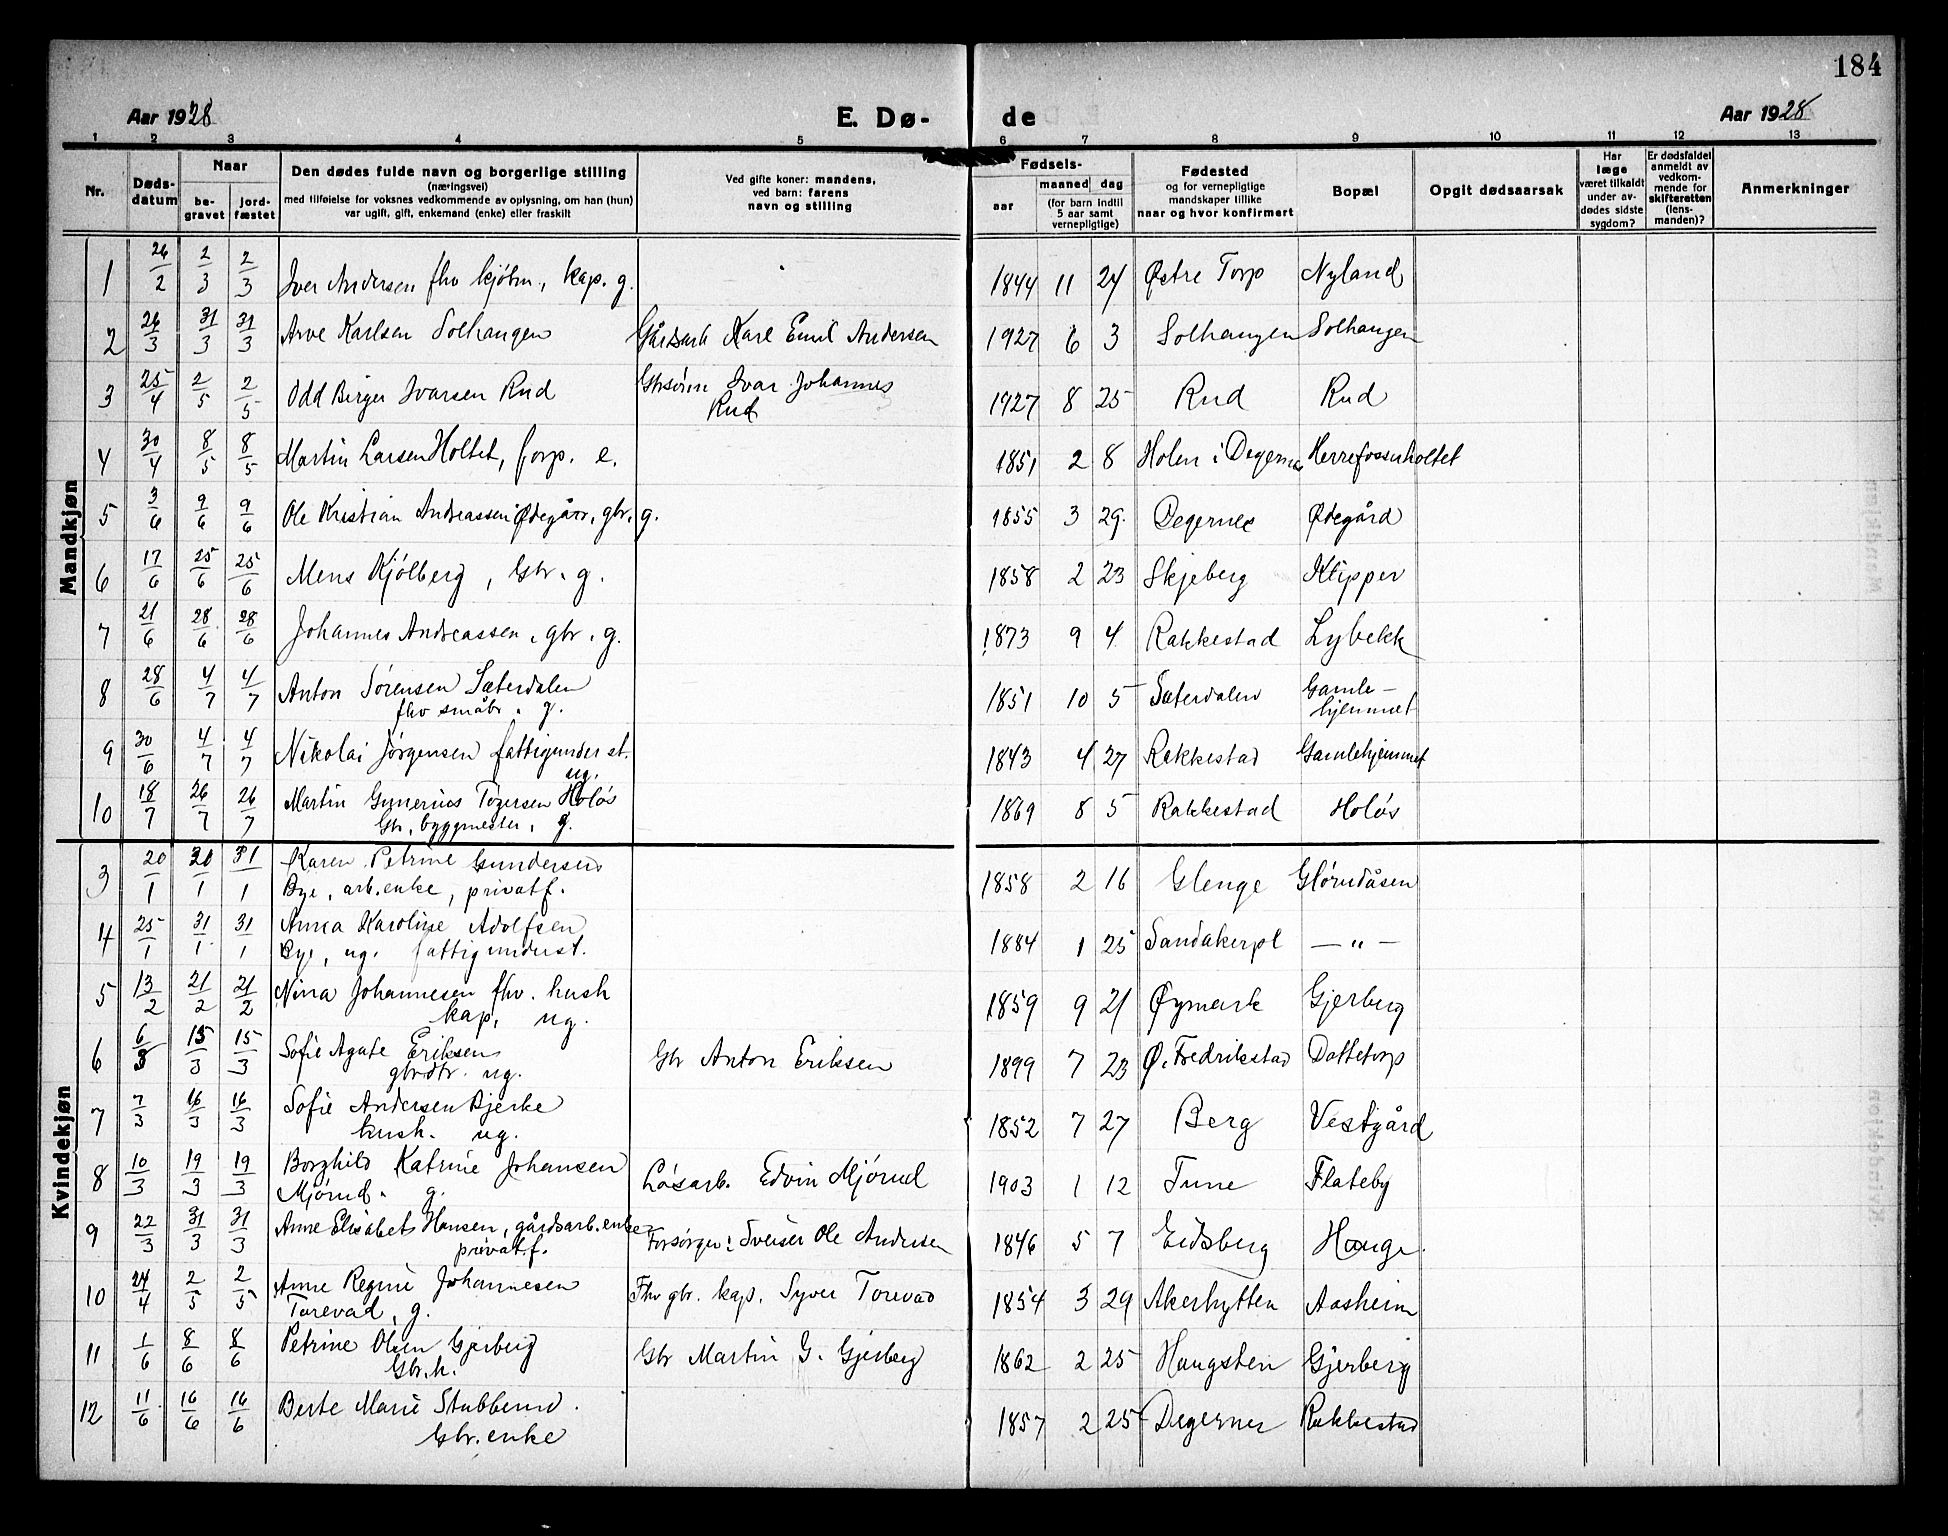 184
Aar 1928 E. Dø- de Aar 1928
1 2 3 4 5 6 7 8 9 10 11 12 13
Nr. Døds-datum Naar be-gravet jord-fæstet Den dødes fulde navn og borgerlige stilling (næringsvei) med tilføielse for voksnes vedkommende av oplysning, om han (hun) var ugift, gift, enkemand (enke) eller fraskilt Ved gifte koner: mandens, ved barn: farens navn og stilling Fødsels- aar maaned dag (for barn indtil 5 aar samt vernepligtige) Fødested og for vernepligtige mandskaper tillike naar og hvor konfirmert Bopæl Opgit dødsaarsak Har læge været tilkaldt under av-dødes sidste sygdom? Er dødsfaldet anmeldt av vedkom-mende for skifteretten (lens-manden)? Anmerkninger
Mandkjøn
1 26/2 2/3 2/3 Iver Andersen fhv kjøbm, kap. g. 1844 11 24 Østre Torp Nyland
2 26/3 31/3 31/3 Arve Karlsen Solhaugen Gårdsarb Karl Emil Andersen 1927 6 3 Solhaugen Solhaugen
3 25/4 2/5 2/5 Odd Birger Ivarsen Rud Gbrsønn Ivar Johannes 1927 8 25 Rud Rud
Rud
4 30/4 8/5 8/5 Martin Larsen Holtet, forp. e. 1851 2 8 Holen i Degernes Herrefossenholtet
5 3/6 9/6 9/6 Ole Kristian Andreassen Ødegård, gbr. g. 1855 3 29. Degernes Ødegård
6 17/6 25/6 25/6 Mens Kjølberg, Gbr. g. 1858 2 23 Skjeberg Klipper
7 21/6 28/6 28/6 Johannes Andreassen, gbr. g. 1873 9 4 Rakkestad Lybekk
8 28/6 4/7 4/7 Anton Sørensen Sæterdalen 1851 10 5 Sæterdalen Gamle-
fhv småbr. g. hjemmet
9 30/6 4/7 4/7 Nikolai Jørgensen fattigunderst. 1843 4 27 Rakkestad Gamlehjemmet
ug.
10 18/7 26/7 26/7 Martin Gunerius Torgersen Holøs 1869 8 5 Rakkestad Holøs
Gbr, byggmester, g.
Kvindekjøn
3 20/1 30/1 31/1 Karen Petrine Gundersen 1858 2 16 Glenge Glørudåsen
Bye, arb.enke, privatf.
4 25/1 31/1 31/1 Anna Karoline Adolfsen 1884 1 25 Sandakerpl — „ —
Bye, ug. fattigunderst.
5 13/2 21/2 21/2 Nina Johannesen fhv. hush 1859 9 21 Øymark Gjerberg
kap, ug.
6 6/3 15/3 15/3 Sofie Agate Eriksen Gbr Anton Eriksen 1899 7 23 Ø. Fredrikstad Dattetorp
gbrdtr. ug.
7 7/3 16/3 16/3 Sofie Andersen Bjerke 1852 7 27 Berg Vestgård
hush. ug.
8 10/3 19/3 19/3 Borghild Katrine Johansen Løsarb. Edvin Mjørud 1903 1 12 Tune Flateby
Mjørud. g.
9 22/3 31/3 31/3 Anne Elisabet Hansen, gårdsarb.enke Forsørger: Sveiser Ole Andersen 1846 5 7 Eidsberg Hauge.
privatf.
10 24/4 2/5 2/5 Anne Regine Johannesen Fhv gbr. kap. Syver Torevad 1854 3 29 Akerhytten Aasheim
Torevad, g.
11 1/6 8/6 8/6 Petrine Olsen Gjerberg Gbr Martin G. Gjerberg 1862 2 25 Haugsten Gjerberg
Gbr.h.
12 11/6 16/6 16/6 Berte Marie Stubberud. 1857 2 25 Degernes Rakkestad
Gbr.enke